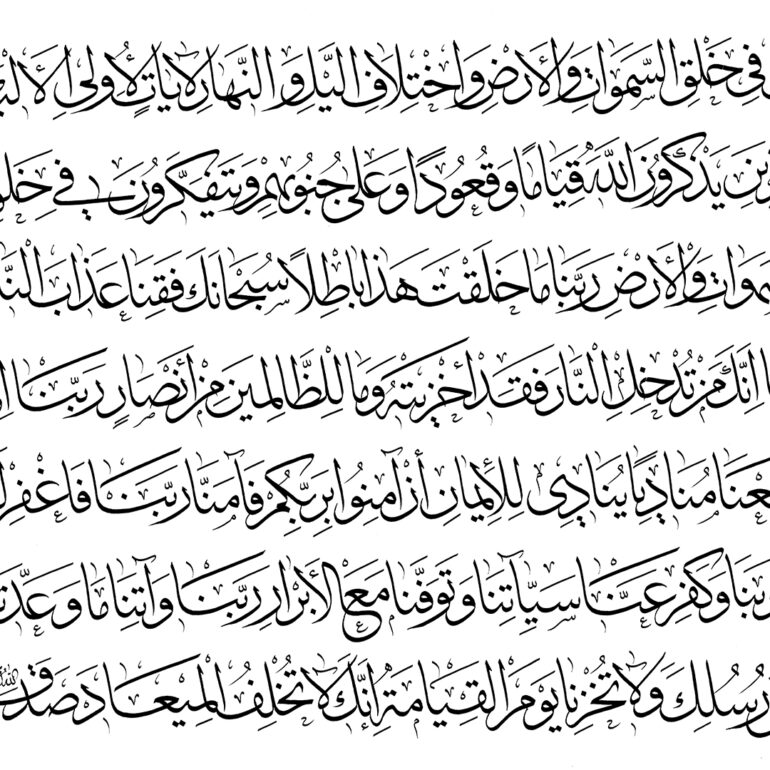 في خَلْقِ السَّمَوَاتِ وَالْأَرْضِ وَاخْتِلَافِ اللَّيْلِ وَالنَّهَارِ لَآيَاتٍ لِأُولِي الْأَلْبَ
يَذْكُرُونَ اللَّهَ قِيَامًا وَقُعُودًا وَعَلَى جُنُوبِهِمْ وَيَتَفَكَّرُونَ فِي خَلْقِ
وَالْأَرْضِ رَبَّنَا مَا خَلَقْتَ هَذَا بَاطِلًا سُبْحَانَكَ فَقِنَا عَذَابَ النَّا
إِنَّكَ مَنْ تُدْخِلِ النَّارَ فَقَدْ أَخْزَيْتَهُ وَمَا لِلظَّالِمِينَ مِنْ أَنْصَارٍ رَبَّنَا
مُنَادِيًا يُنَادِي لِلْإِيمَانِ أَنْ آمِنُوا بِرَبِّكُمْ فَآمَنَّا رَبَّنَا فَاغْفِرْ
وَكَفِّرْ عَنَّا سَيِّآتِنَا وَتَوَفَّنَا مَعَ الْأَبْرَارِ رَبَّنَا وَآتِنَا مَا وَعَدْتَ
رُسُلِكَ وَلَا تُخْزِنَا يَوْمَ الْقِيَامَةِ إِنَّكَ لَا تُخْلِفُ الْمِيعَادَ صَدَقَ اللَّهُ